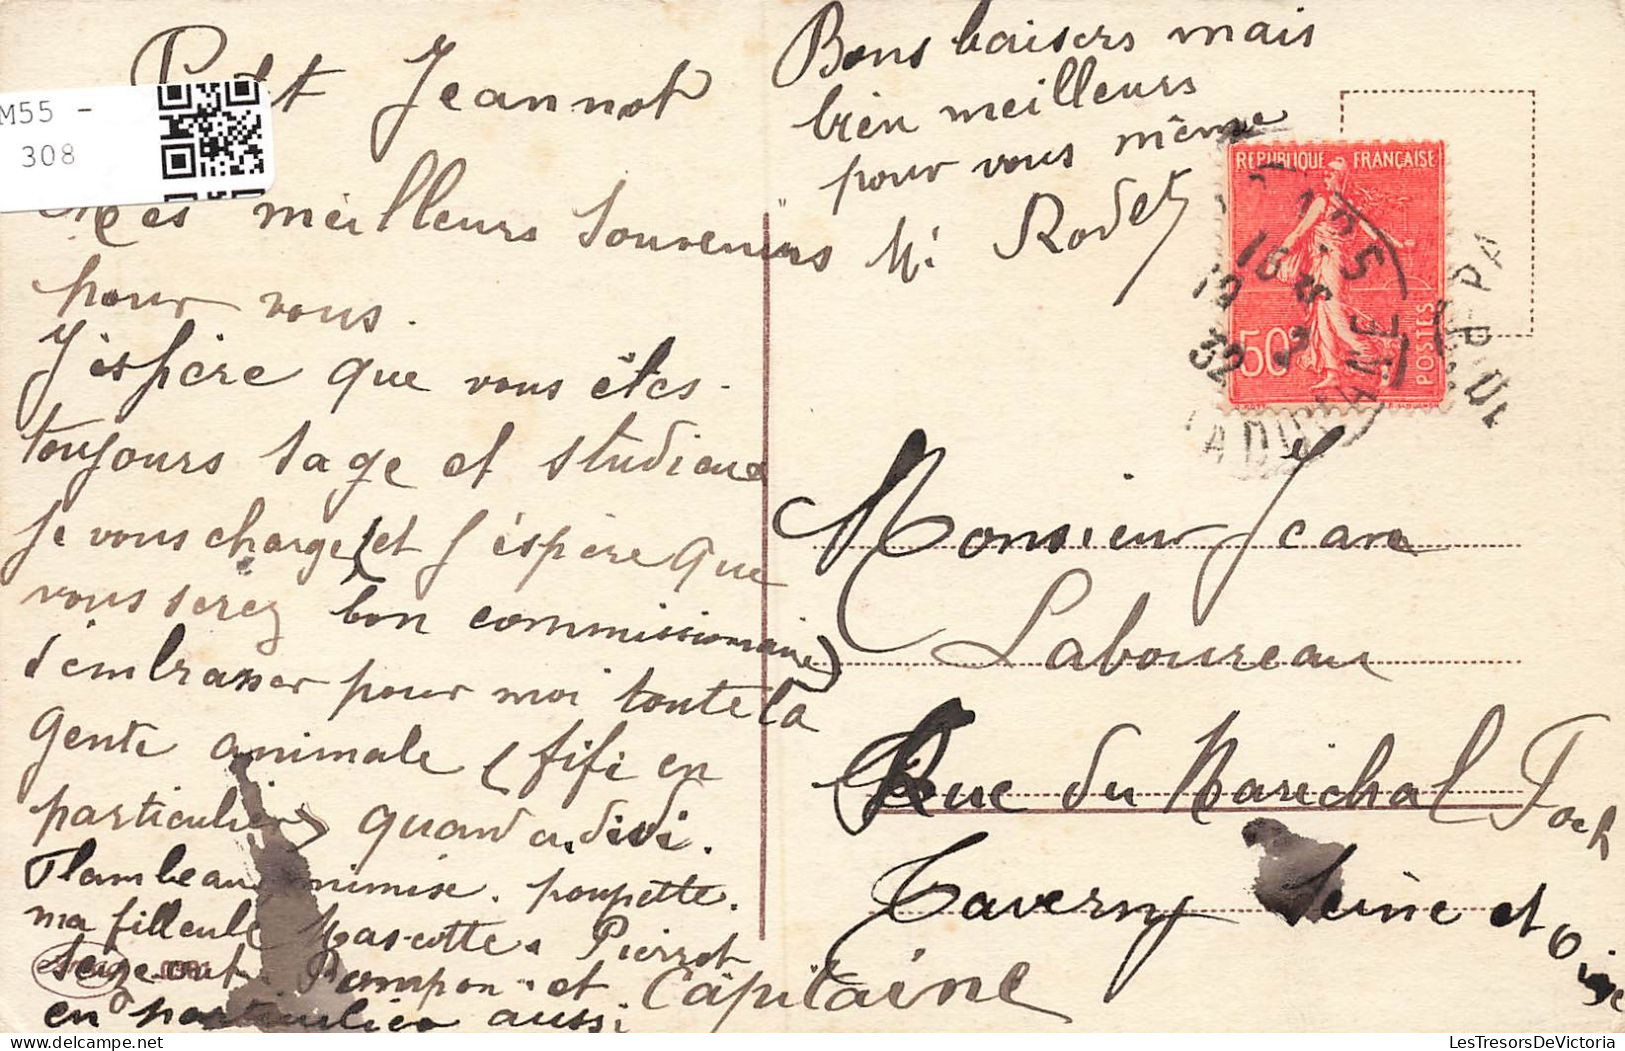 Petit Jeannot
Mes meilleurs souvenirs
pour vous.
J'espère que vous êtes
toujours sage et studieux
je vous charge (et j'espère que
vous serez bon commissionaire)
d'embrasser pour moi toute la
gente animale (fifi en
particulier) quand a didi.
Flambeau mimise. poupette.
ma filleule Mascotte. Pierrot
Pompon et Capitaine
en particulier aussi
Bons baisers mais
bien meilleurs
pour vous même
M. Rodet
M55 -
308
REPUBLIQUE FRANÇAISE
50
POSTES
16
19
32
Monsieur Jean
Laboureau
Rue du Maréchal Foch
Taverny Seine et Oise
LesTresorsDeVictoria